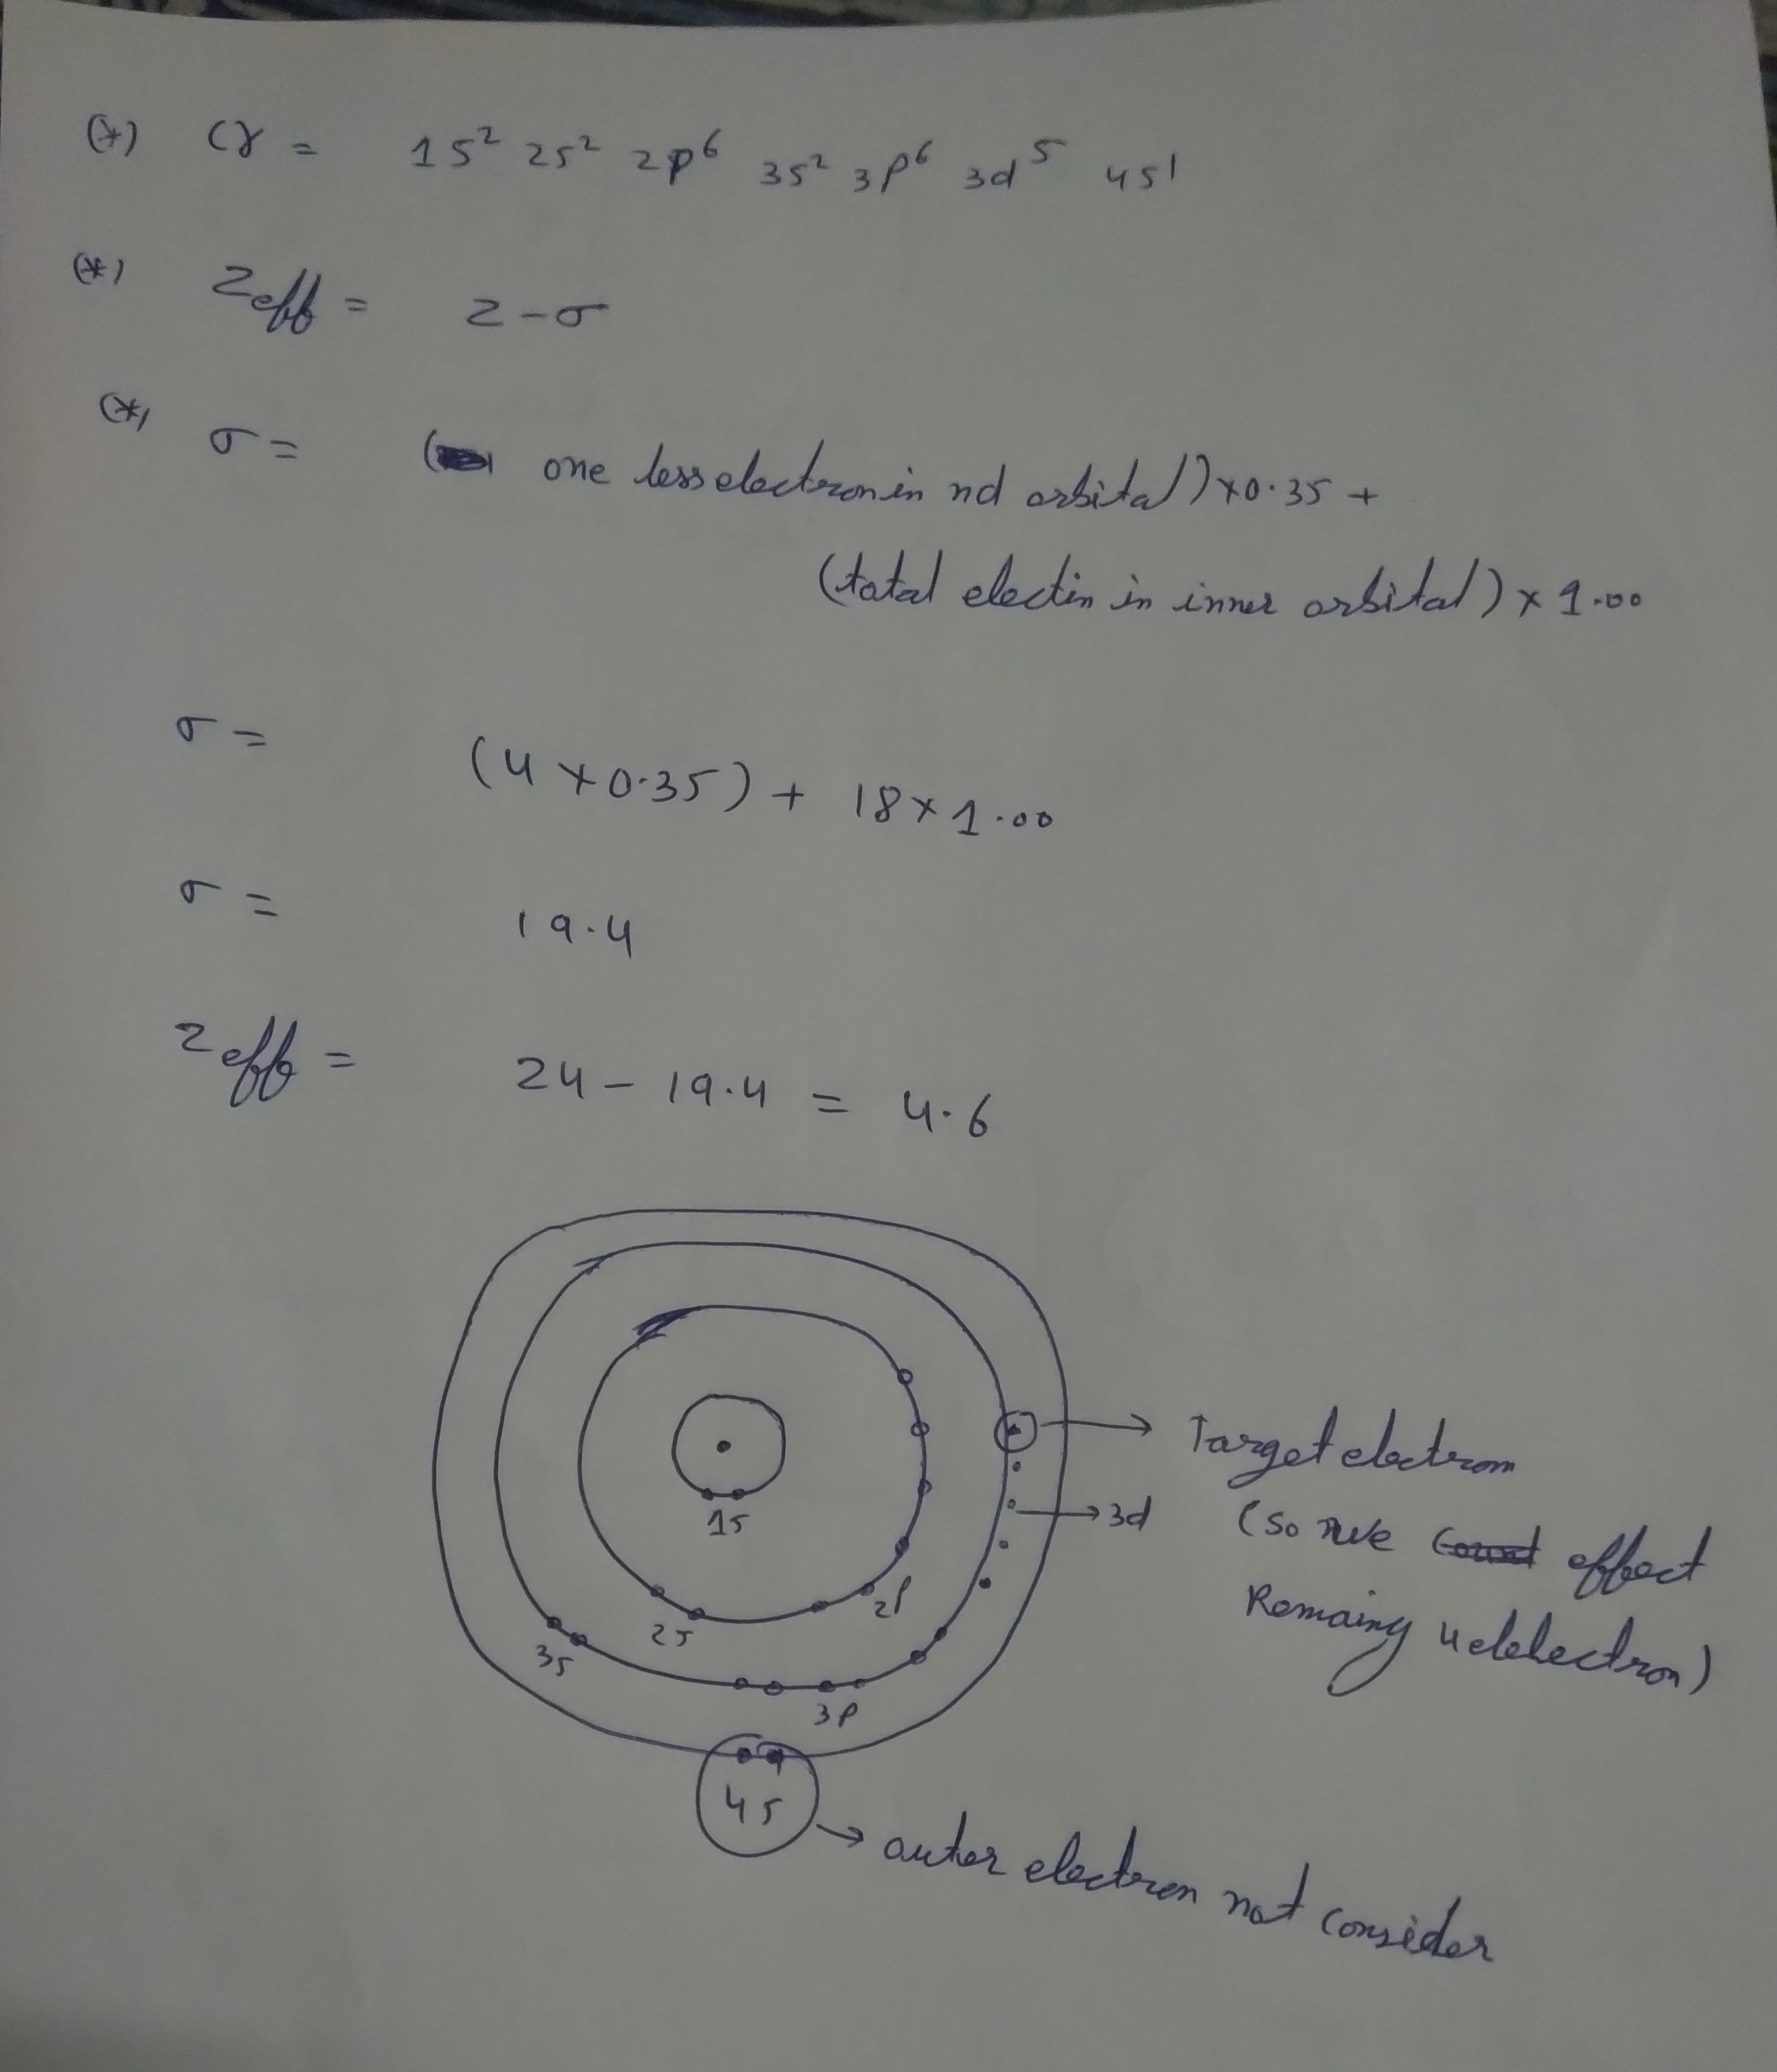 (*) Cr = 1s² 2s² 2p⁶ 3s² 3p⁶ 3d⁵ 4s¹
(*) Zeff = Z-σ
(*) σ = ( one less electron in nd orbital) x 0.35 +
(total electin in inner orbital) x 1.00
σ = (4 x 0.35) + 18 x 1.00
σ = 19.4
Zeff = 24 - 19.4 = 4.6
Target electron
(So effect
Remaing 4 elelectron)
3d
1s
2s
2p
3s
3p
4s
outer electron not consider